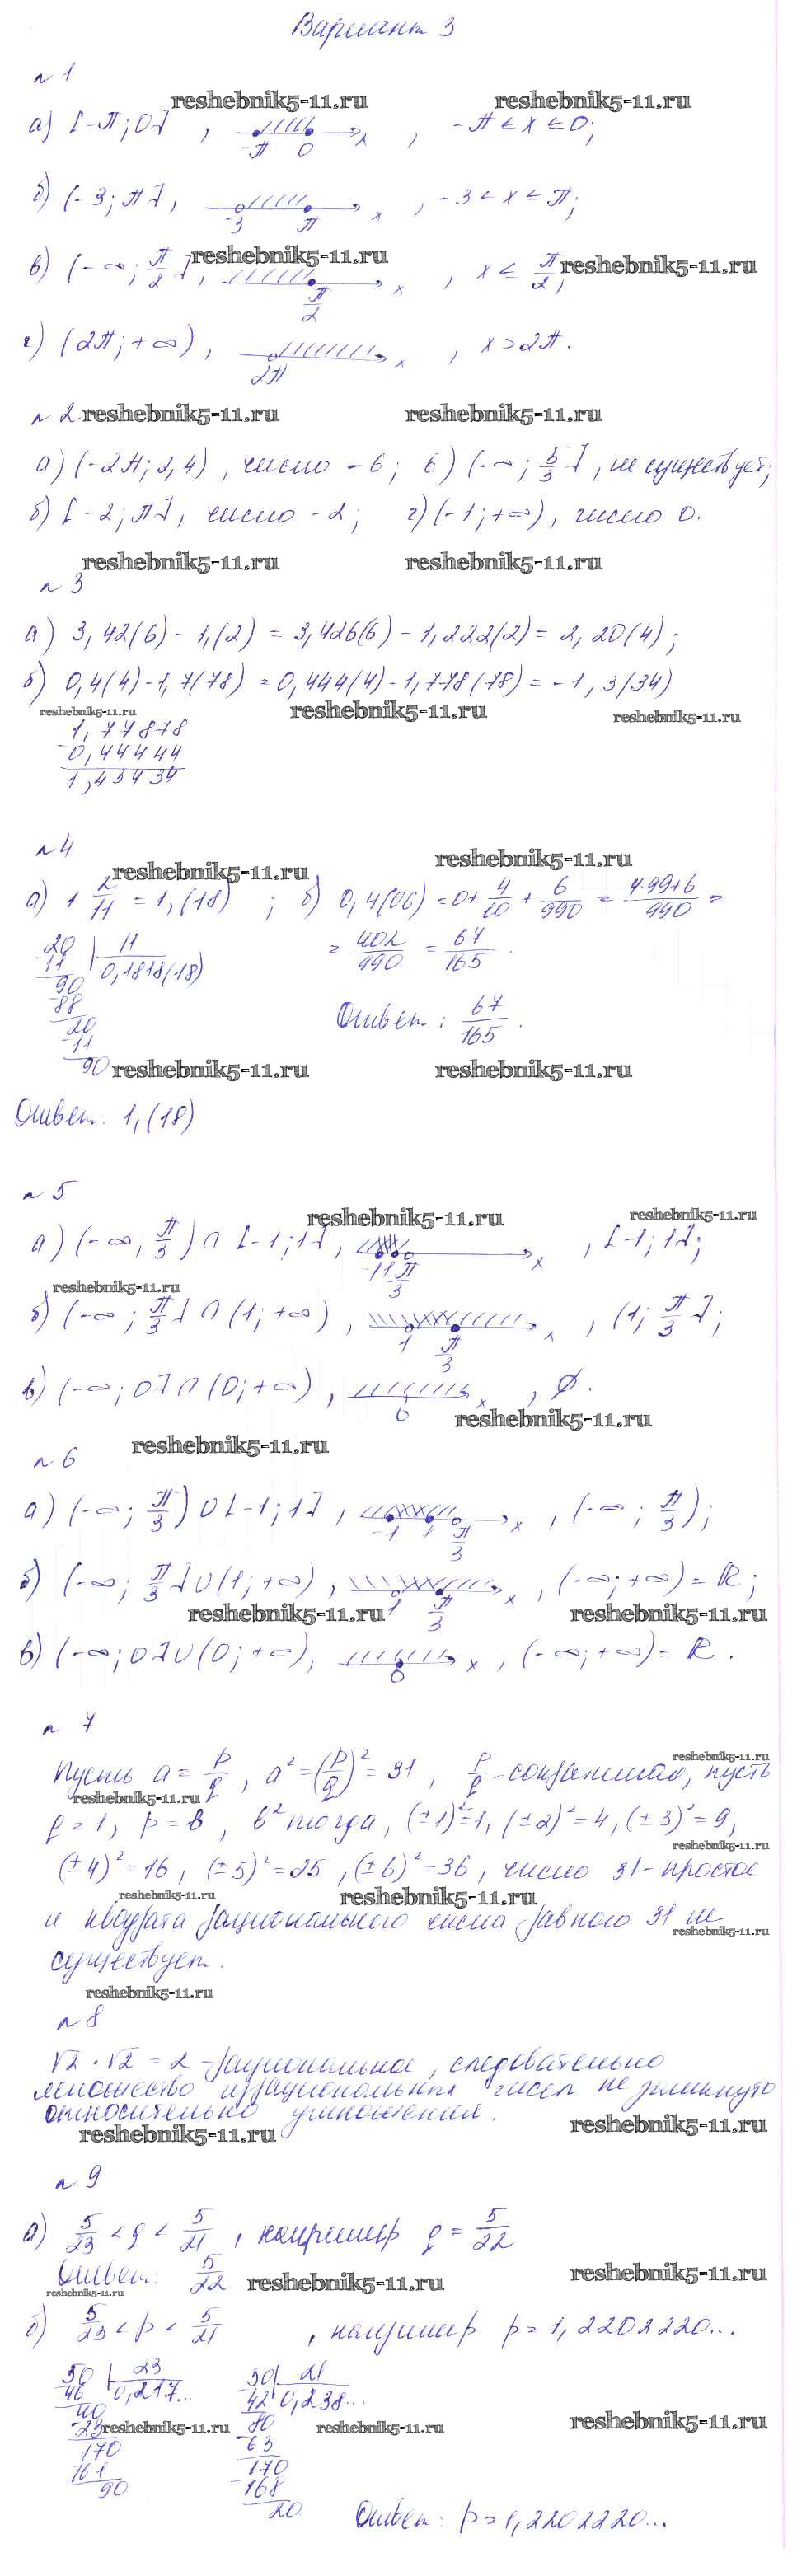 Вариант 3
n 1
reshebnik5-11.ru reshebnik5-11.ru
а) [-π; 0] , -π 0 x , -π ≤ x ≤ 0;
б) (-3; π], -3 π x , -3 < x ≤ π;
reshebnik5-11.ru
в) (-∞; π/2], π/2 x , x ≤ π/2; reshebnik5-11.ru
г) (2π; +∞), 2π x , x > 2π.
n 2 reshebnik5-11.ru reshebnik5-11.ru
а) (-2π; 2,4), число -6; в) (-∞; 5/3], не существует;
б) [-2; π], число -2; г) (-1; +∞), число 0.
reshebnik5-11.ru reshebnik5-11.ru
n 3
а) 3,42(6) - 1,(2) = 3,426(6) - 1,222(2) = 2,20(4);
б) 0,4(4) - 1,7(78) = 0,444(4) - 1,778(78) = -1,3(34)
reshebnik5-11.ru reshebnik5-11.ru reshebnik5-11.ru
1,77878
-0,44444
1,43434
n 4
reshebnik5-11.ru reshebnik5-11.ru
а) 1 2/11 = 1,(18) ; б) 0,4(06) = 0 + 4/10 + 6/990 = 4·99+6/990 =
20 | 11 = 402/990 = 67/165 .
-11 0,1818(18)
90
-88
20 Ответ: 67/165 .
-11
90 reshebnik5-11.ru reshebnik5-11.ru
Ответ: 1,(18)
n 5
reshebnik5-11.ru reshebnik5-11.ru
а) (-∞; π/3) ∩ [-1; 1], -1 1 π/3 x , [-1; 1];
reshebnik5-11.ru
б) (-∞; π/3] ∩ (1; +∞), 1 π/3 x , (1; π/3];
в) (-∞; 0] ∩ (0; +∞), 0 x , ∅.
reshebnik5-11.ru
reshebnik5-11.ru
n 6
а) (-∞; π/3) ∪ [-1; 1], -1 1 π/3 x , (-∞; π/3);
б) (-∞; π/3] ∪ (1; +∞), 1 π/3 x , (-∞; +∞) = R;
reshebnik5-11.ru reshebnik5-11.ru
в) (-∞; 0] ∪ (0; +∞), 0 x , (-∞; +∞) = R.
n 7
reshebnik5-11.ru
Пусть a = p/q , a² = (p/q)² = 31 , p/q - сократимая, пусть
reshebnik5-11.ru
q = 1, p = в , в² тогда, (±1)² = 1, (±2)² = 4, (±3)² = 9,
reshebnik5-11.ru
(±4)² = 16 , (±5)² = 25 , (±6)² = 36 , число 31 - простое
reshebnik5-11.ru reshebnik5-11.ru
и квадрата рационального числа равного 31 не
reshebnik5-11.ru
существует.
reshebnik5-11.ru
n 8
√2 · √2 = 2 - рациональное, следовательно
множество иррациональных чисел не замкнуто
относительно умножения.
reshebnik5-11.ru reshebnik5-11.ru
n 9
а) 5/23 < q < 5/21 , например q = 5/22
Ответ: 5/22 reshebnik5-11.ru reshebnik5-11.ru
reshebnik5-11.ru
б) 5/23 < p < 5/21 , например p = 1,2202220...
50 | 23 50 | 21
-46 0,217... -42 0,238...
40 80
-23 reshebnik5-11.ru reshebnik5-11.ru reshebnik5-11.ru
170 -63
161 170
90 -168
20 Ответ: p = 1,2202220...